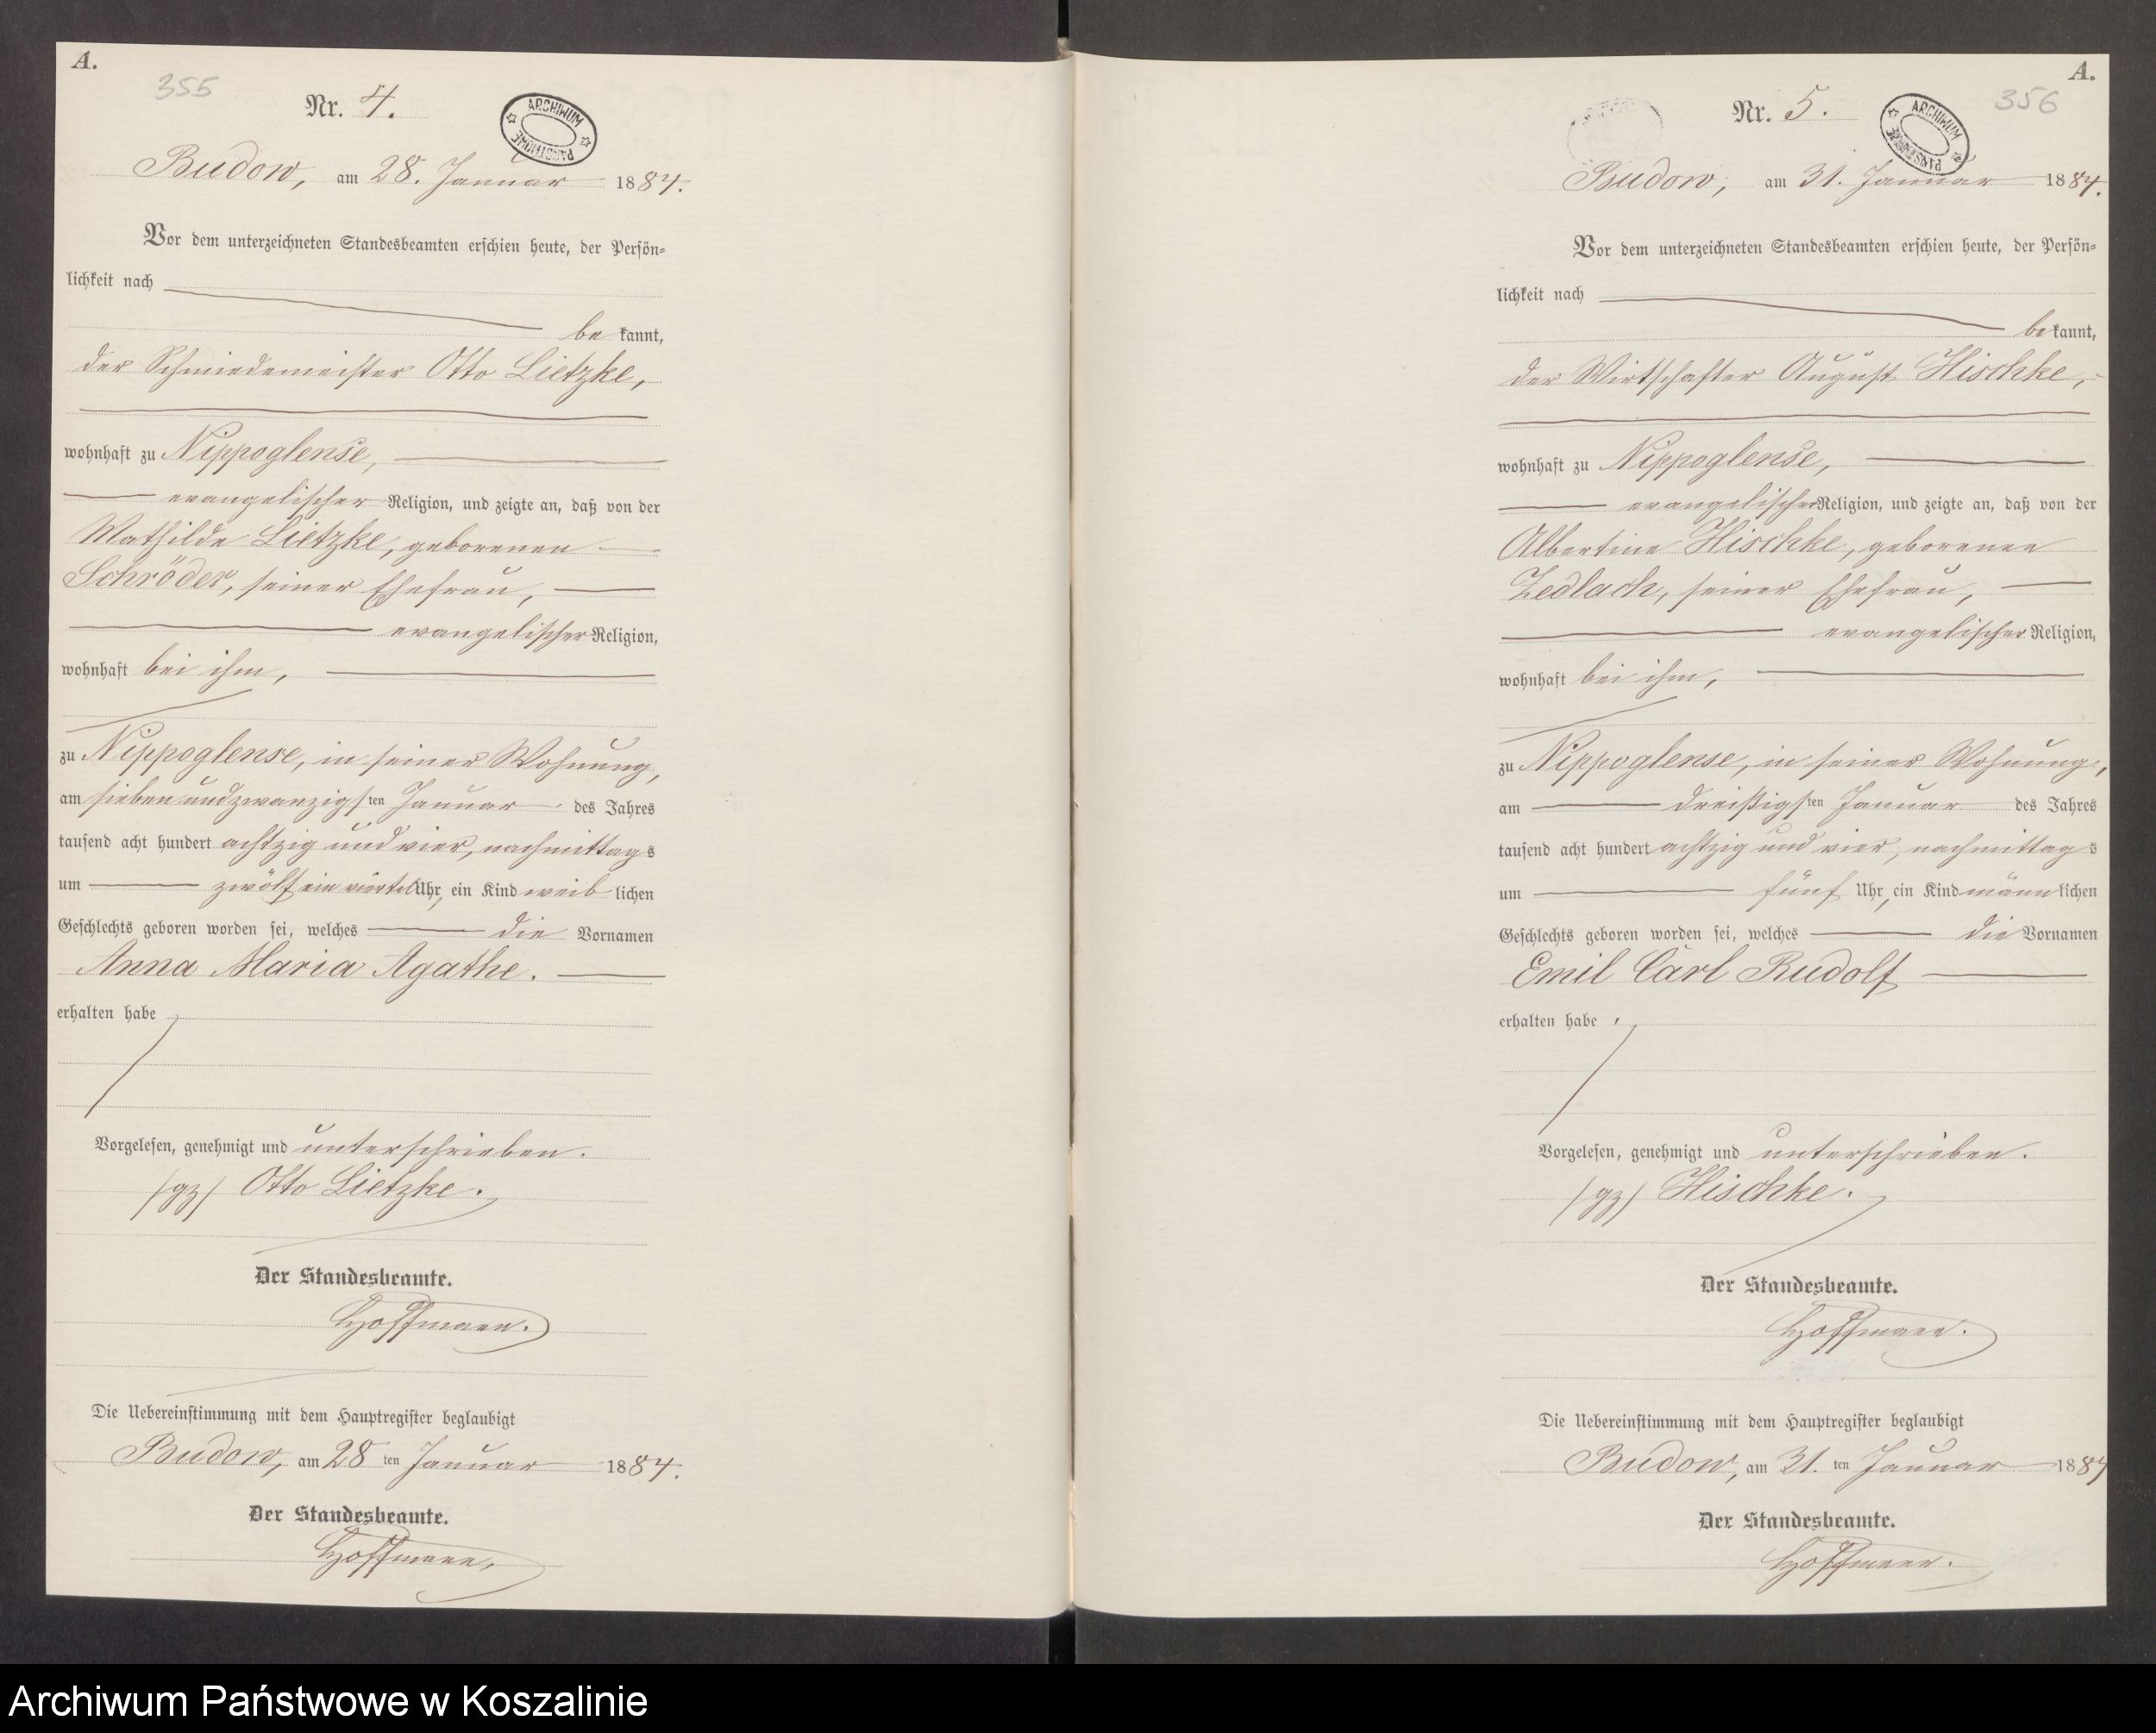 A.
355
Nr. 4.
ARCHIWUM PAŃSTWOWE
Budow, am 28. Januar 1884.
Vor dem unterzeichneten Standesbeamten erschien heute, der Persön-
lichkeit nach
be kannt,
der Schmiedemeister Otto Lietzke,
wohnhaft zu Nippoglense,
evangelischer Religion, und zeigte an, daß von der
Mathilde Lietzke, geborenen
Schröder, seiner Ehefrau,
evangelischer Religion,
wohnhaft bei ihm,
zu Nippoglense, in seiner Wohnung,
am siebenundzwanzigsten Januar des Jahres
tausend acht hundert achtzig und vier, nachmittags
um zwölf ein viertel Uhr, ein Kind weib lichen
Geschlechts geboren worden sei, welches die Vornamen
Anna Maria Agathe.
erhalten habe
Vorgelesen, genehmigt und unterschrieben.
/gz/ Otto Lietzke.
Der Standesbeamte.
Hoffmann.
Die Uebereinstimmung mit dem Hauptregister beglaubigt
Budow, am 28 ten Januar 1884.
Der Standesbeamte.
Hoffmann.
A.
356
Nr. 5.
ARCHIWUM PAŃSTWOWE
Budow, am 31. Januar 1884.
Vor dem unterzeichneten Standesbeamten erschien heute, der Persön-
lichkeit nach
be kannt,
der Wirtschafter August Hischke,
wohnhaft zu Nippoglense,
evangelischer Religion, und zeigte an, daß von der
Albertine Hischke, geborenen
Zedlach, seiner Ehefrau,
evangelischer Religion,
wohnhaft bei ihm,
zu Nippoglense, in seiner Wohnung,
am dreißigsten Januar des Jahres
tausend acht hundert achtzig und vier, nachmittags
um fünf Uhr, ein Kind männ lichen
Geschlechts geboren worden sei, welches die Vornamen
Emil Carl Rudolf
erhalten habe.
Vorgelesen, genehmigt und unterschrieben.
/gz/ Hischke.
Der Standesbeamte.
Hoffmann.
Die Uebereinstimmung mit dem Hauptregister beglaubigt
Budow, am 31. ten Januar 1884
Der Standesbeamte.
Hoffmann.
Archiwum Państwowe w Koszalinie